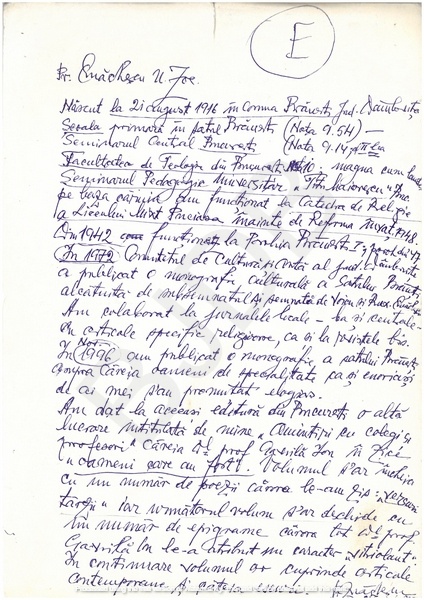 E
Pr. Enăchescu N. Ioe.
Născut la 21 august 1916 în comuna Bucşani, Jud. Dâmboviţa,
Scoala primară în satul (Nota 9.54) —
Seminarul Central Bucureşti (Nota 9.14, 
Facultatea de Teologie din Bucureşti 10: magna cum laude,
Seminarul Pedagogic Universitar "Titu Maiorescu"
pe baza căruia am funcţionat la Catedra de Religie
a Liceului Mixt înainte de Reforma învăţ. 1948.
Din 1942 funcţionat la Parohia 
In 1972 Comitetul de Cultură şi Artă al jud. Dâmboviţa
a publicat o monografie culturală a satului
alcătuită de subsemnatul şi semnată de
Am colaborat la jurnalele locale — ba şi centrale —
cu articole specific religioase, ca şi la revistele bis.
In Nov. 1996 am publicat o monografie a satului
asupra căreia oameni de specialitate ca şi enoriaşi
de ai mei s'au pronunţat elogios.
Am dat la aceeasi editură din Bucureşti o altă
lucrare intitulată de mine, "Amintiri cu colegi şi
profesori" căreia d-l prof Gavrilă Ion îi zice
"oameni care au fost". Volumul s'ar încheia
cu un număr de poezii cărora le-am zis:
iar următorul volum s'ar deschide cu
un număr de epigrame cărora tot d-l prof.
Gavrilă Ion le-a atribuit un caracter "vitriolant".
In continuare volumul ar cuprinde articole
contemporane şi câteva